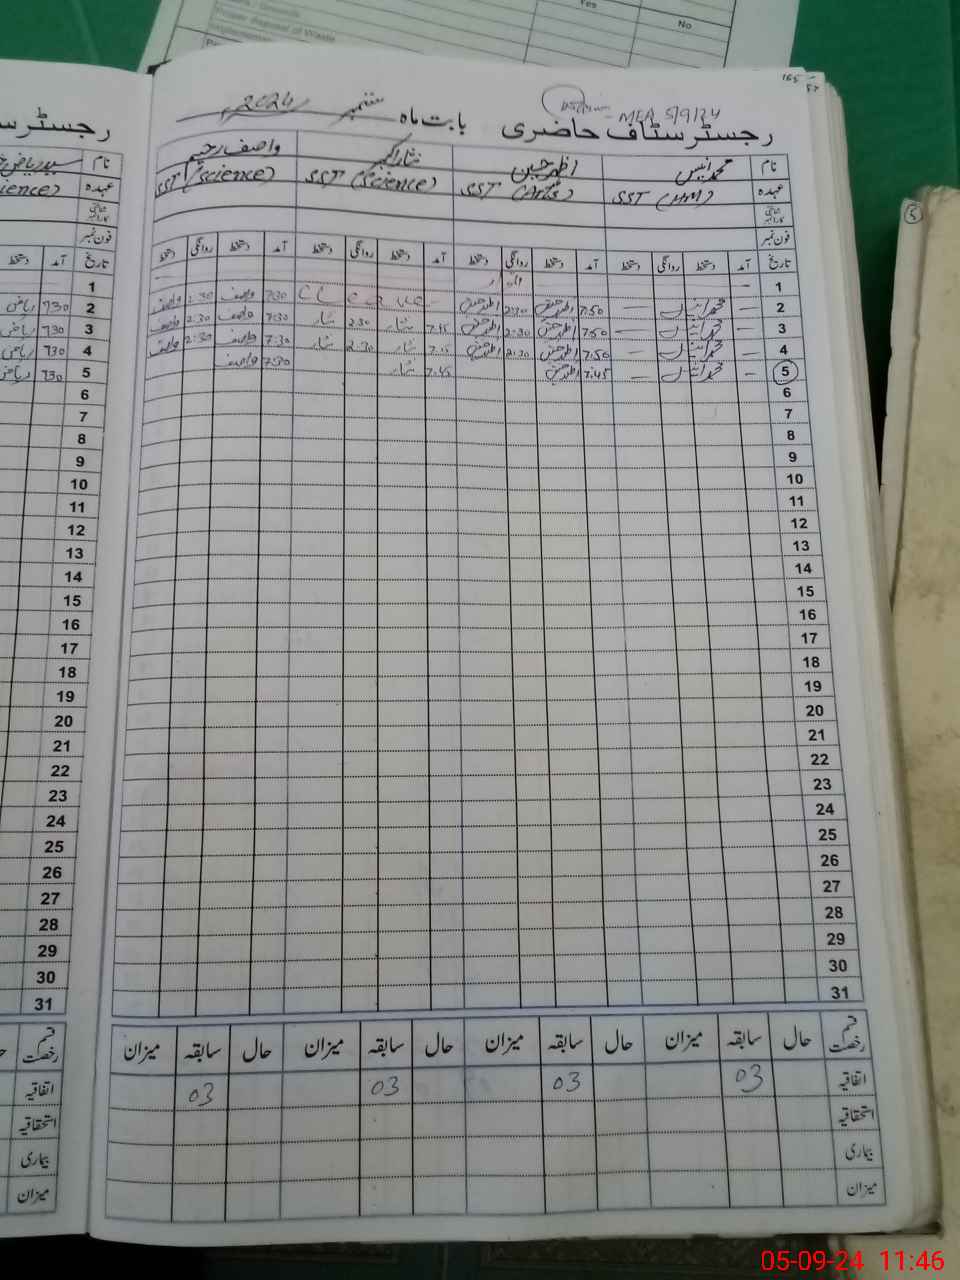 Yes
No
Proper disposal of Waste
165
MEA 5/9/24
رجسٹر سٹاف حاضری بابت ماہ ستمبر 2024
نام محمد انیس اظہر حسین نثار اکبر واصف رحیم
عہدہ SST (HM) SST (Arts) SST (Science) SST (Science)
فون نمبر
تاریخ آمد دستخط روانگی دستخط آمد دستخط روانگی دستخط آمد دستخط روانگی دستخط آمد دستخط روانگی دستخط
1 — اتوار
2 — محمد انیس — 7:50 اظہر حسین 2:30 اظہر حسین C Leave 7:30 واصف 2:30 واصف
3 — محمد انیس — 7:50 اظہر حسین 2:30 اظہر حسین 7:45 نثار 2:30 نثار 7:30 واصف 2:30 واصف
4 — محمد انیس — 7:50 اظہر حسین 2:30 اظہر حسین 7:45 نثار 2:30 نثار 7:30 واصف 2:30 واصف
5 — محمد انیس — 7:45 اظہر حسین 7:45 نثار 7:30 واصف
6
7
8
9
10
11
12
13
14
15
16
17
18
19
20
21
22
23
24
25
26
27
28
29
30
31
قسم رخصت حال سابقہ میزان حال سابقہ میزان حال سابقہ میزان حال سابقہ میزان
اتفاقیہ 03 03 03 03
استحقاقیہ
بیماری
میزان
رجسٹر
نام سید ریاض
عہدہ
فون نمبر
تاریخ آمد
1
2 730 ریاض
3 730 ریاض
4 730 ریاض
5 730 ریاض
6
7
8
9
10
11
12
13
14
15
16
17
18
19
20
21
22
23
24
25
26
27
28
29
30
31
قسم رخصت
اتفاقیہ
استحقاقیہ
بیماری
میزان
05-09-24 11:46